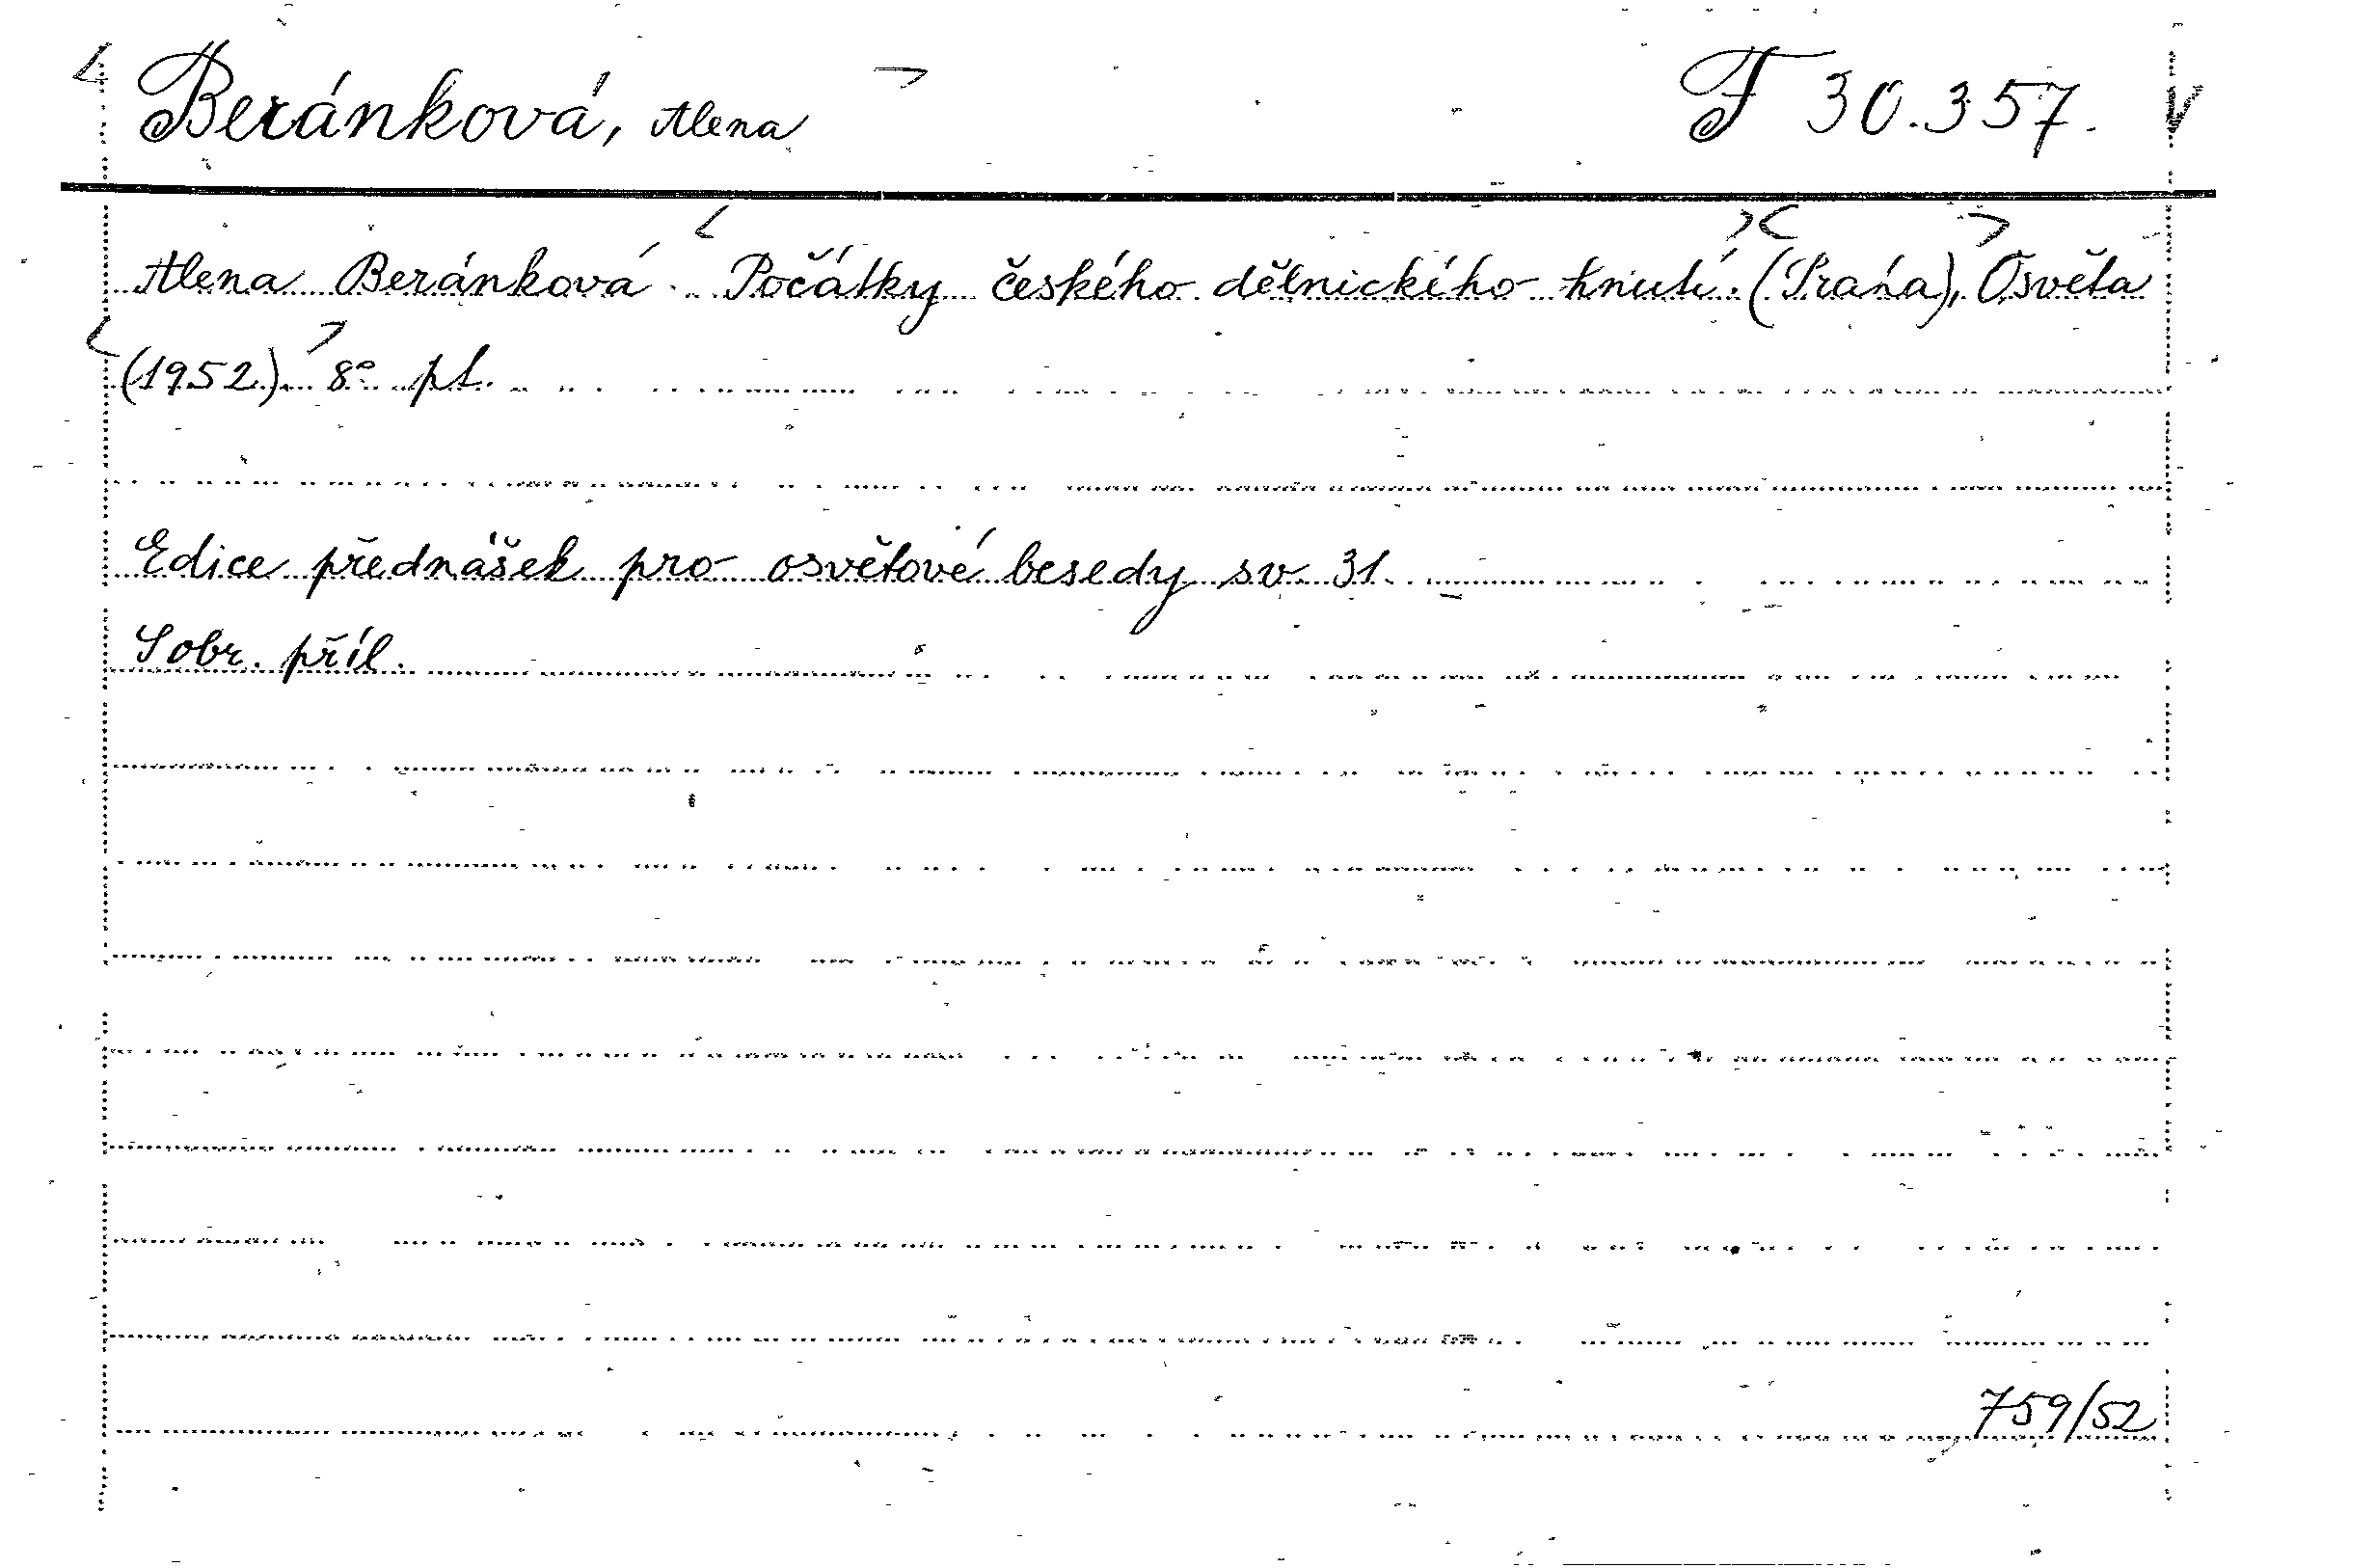 Beránková, Alena F 30.357.
Alena Beránková. Počátky českého dělnického hnutí. (Praha), Osvěta
(1952). 8° pt.
Edice přednášek pro osvětové besedy sv. 31.
S obr. příl.
759/52